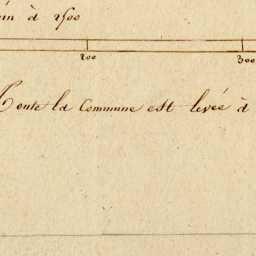 à 2500
200 300
Toute la Commune est levée à